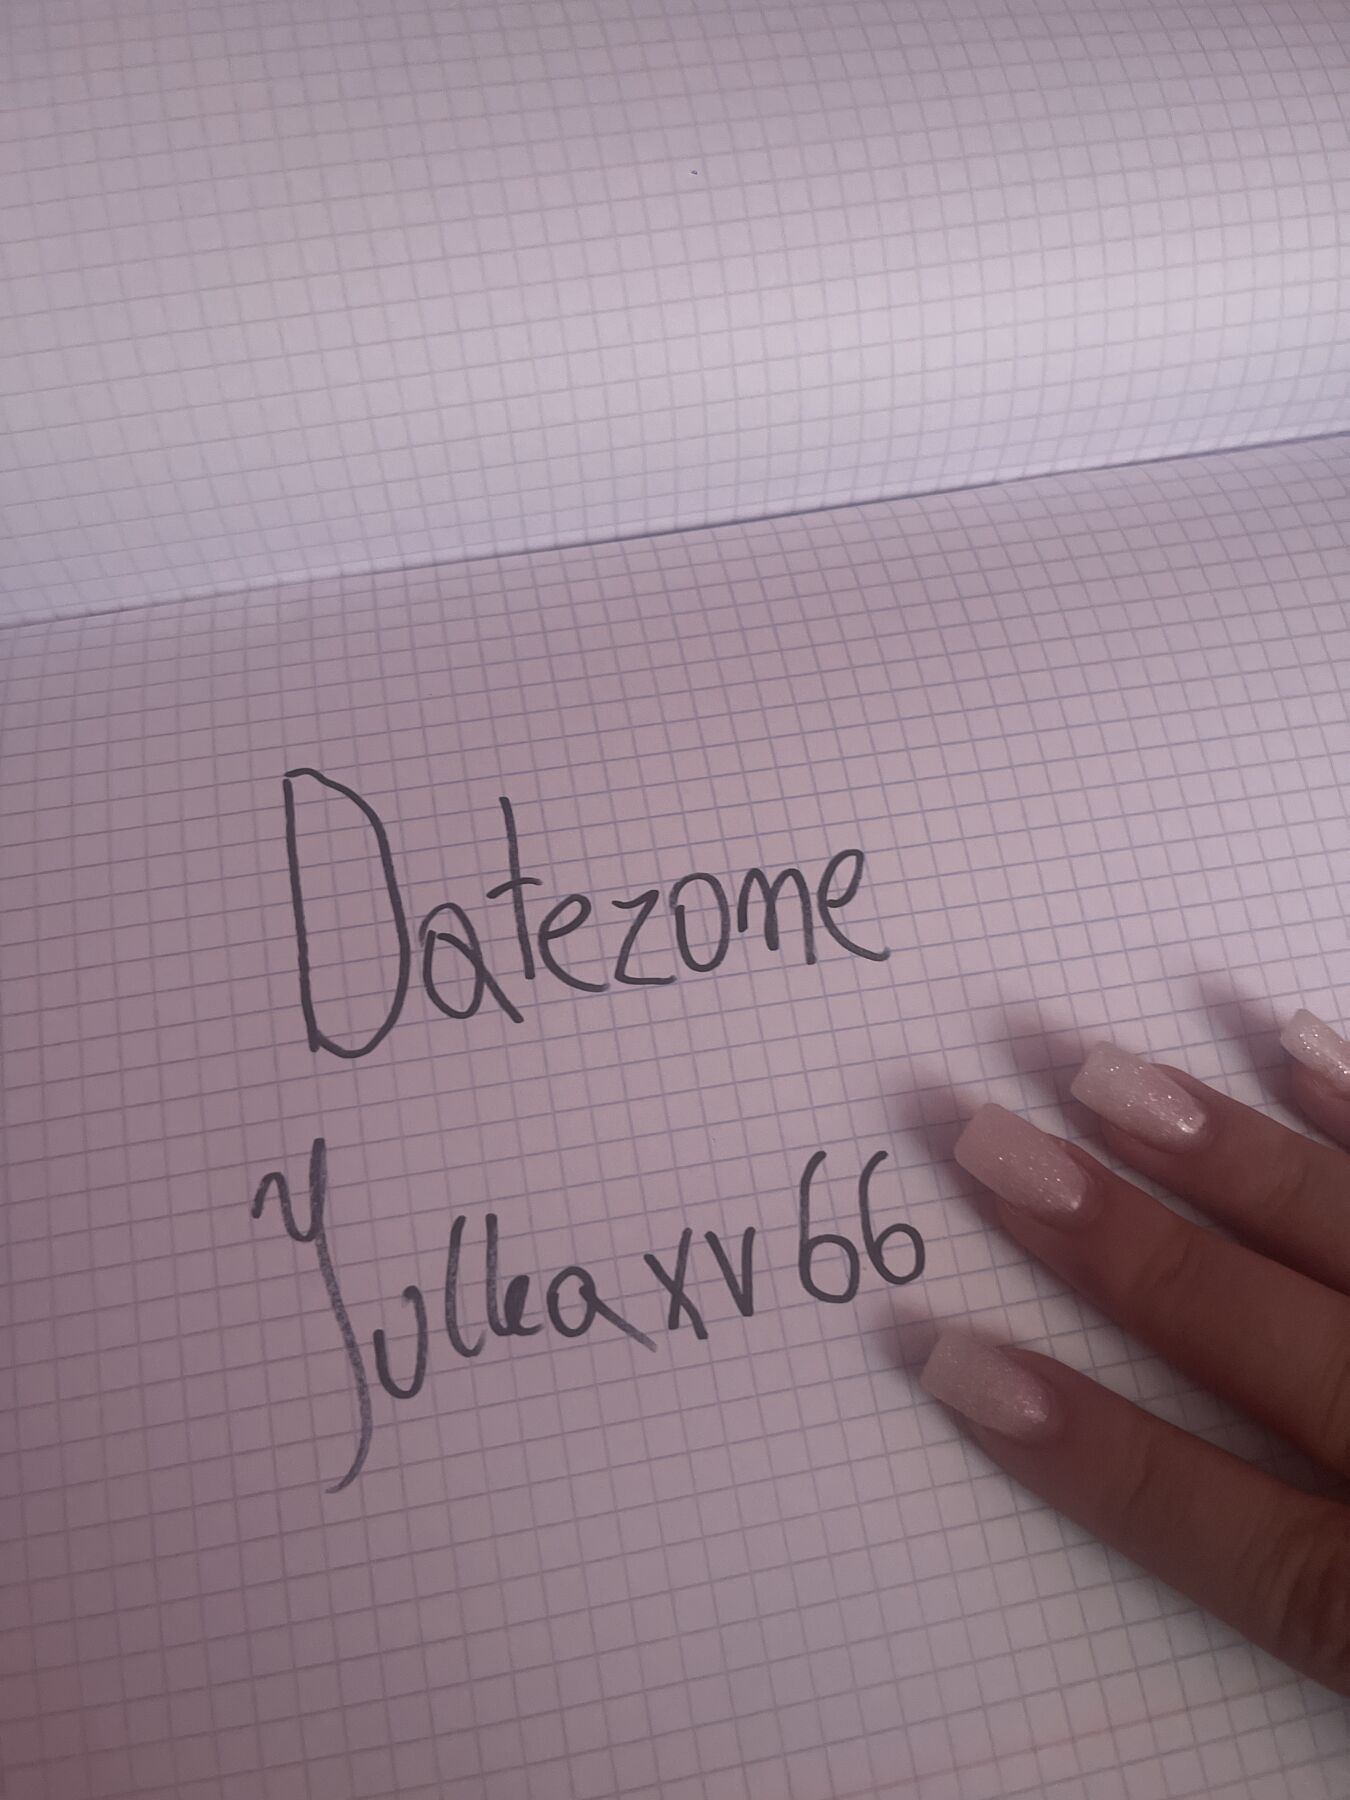 Datezone
Yulkaxv66